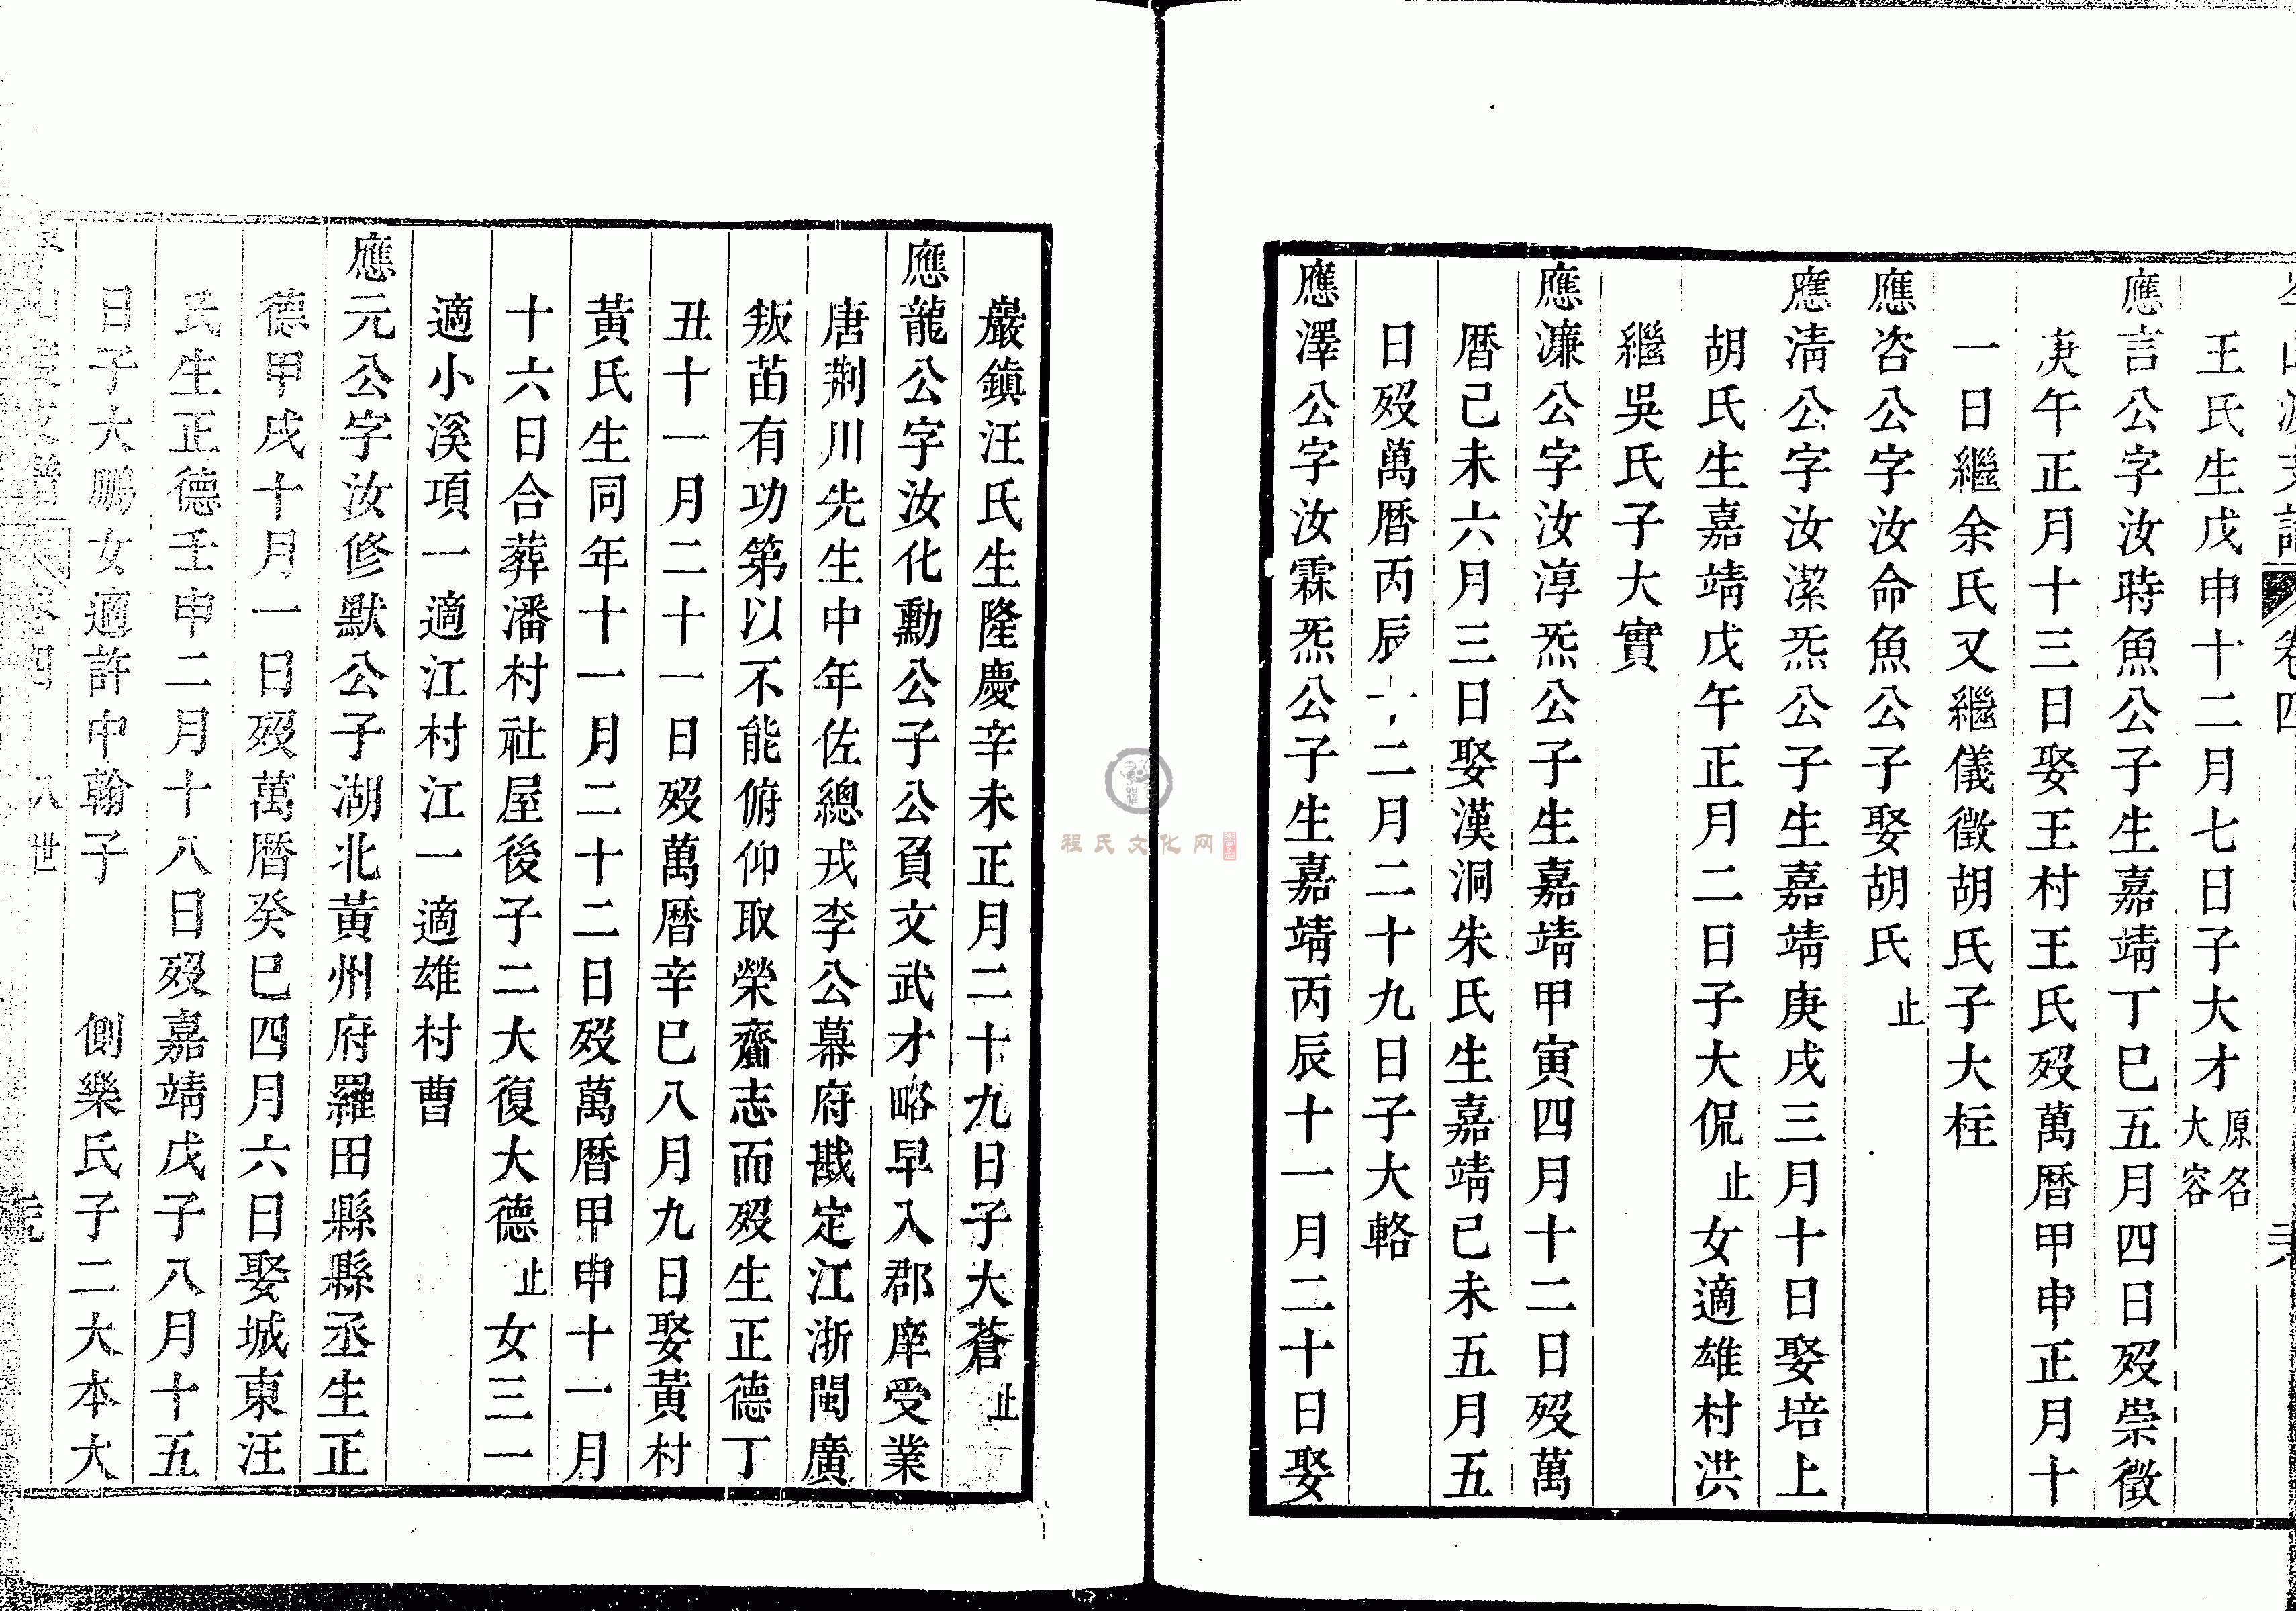 王氏生戊申十二月七日子大才原名大容
應言公字汝時魚公子生嘉靖丁巳五月四日歿崇徵
庚午正月十三日娶王村王氏歿萬曆甲申正月十
一日繼余氏又繼儀徵胡氏子大柱
應咨公字汝命魚公子娶胡氏止
應清公字汝潔炁公子生嘉靖庚戌三月十日娶培上
胡氏生嘉靖戊午正月二日子大侃止女適雄村洪
繼吳氏子大實
應濂公字汝淳炁公子生嘉靖甲寅四月十二日歿萬
曆己未六月三日娶漢洞朱氏生嘉靖己未五月五
日歿萬曆丙辰十二月二十九日子大輅
應澤公字汝霖炁公子生嘉靖丙辰十一月二十日娶
巖鎮汪氏生隆慶辛未正月二十九日子大蒼止
應龍公字汝化勳公子公負文武才略早入郡庠受業
唐荆川先生中年佐總戎李公幕府戡定江浙閩廣
叛苗有功第以不能俯仰取榮齎志而歿生正德丁
丑十一月二十一日歿萬曆辛巳八月九日娶黃村
黃氏生同年十一月二十二日歿萬曆甲申十一月
十六日合葬潘村社屋後子二大復大德止女三一
適小溪項一適江村江一適雄村曹
應元公字汝修默公子湖北黃州府羅田縣縣丞生正
德甲戌十月一日歿萬曆癸巳四月六日娶城東汪
氏生正德壬申二月十八日歿嘉靖戊子八月十五
日子大鵬女適許中翰子 側樂氏子二大本大
八世
程氏文化网